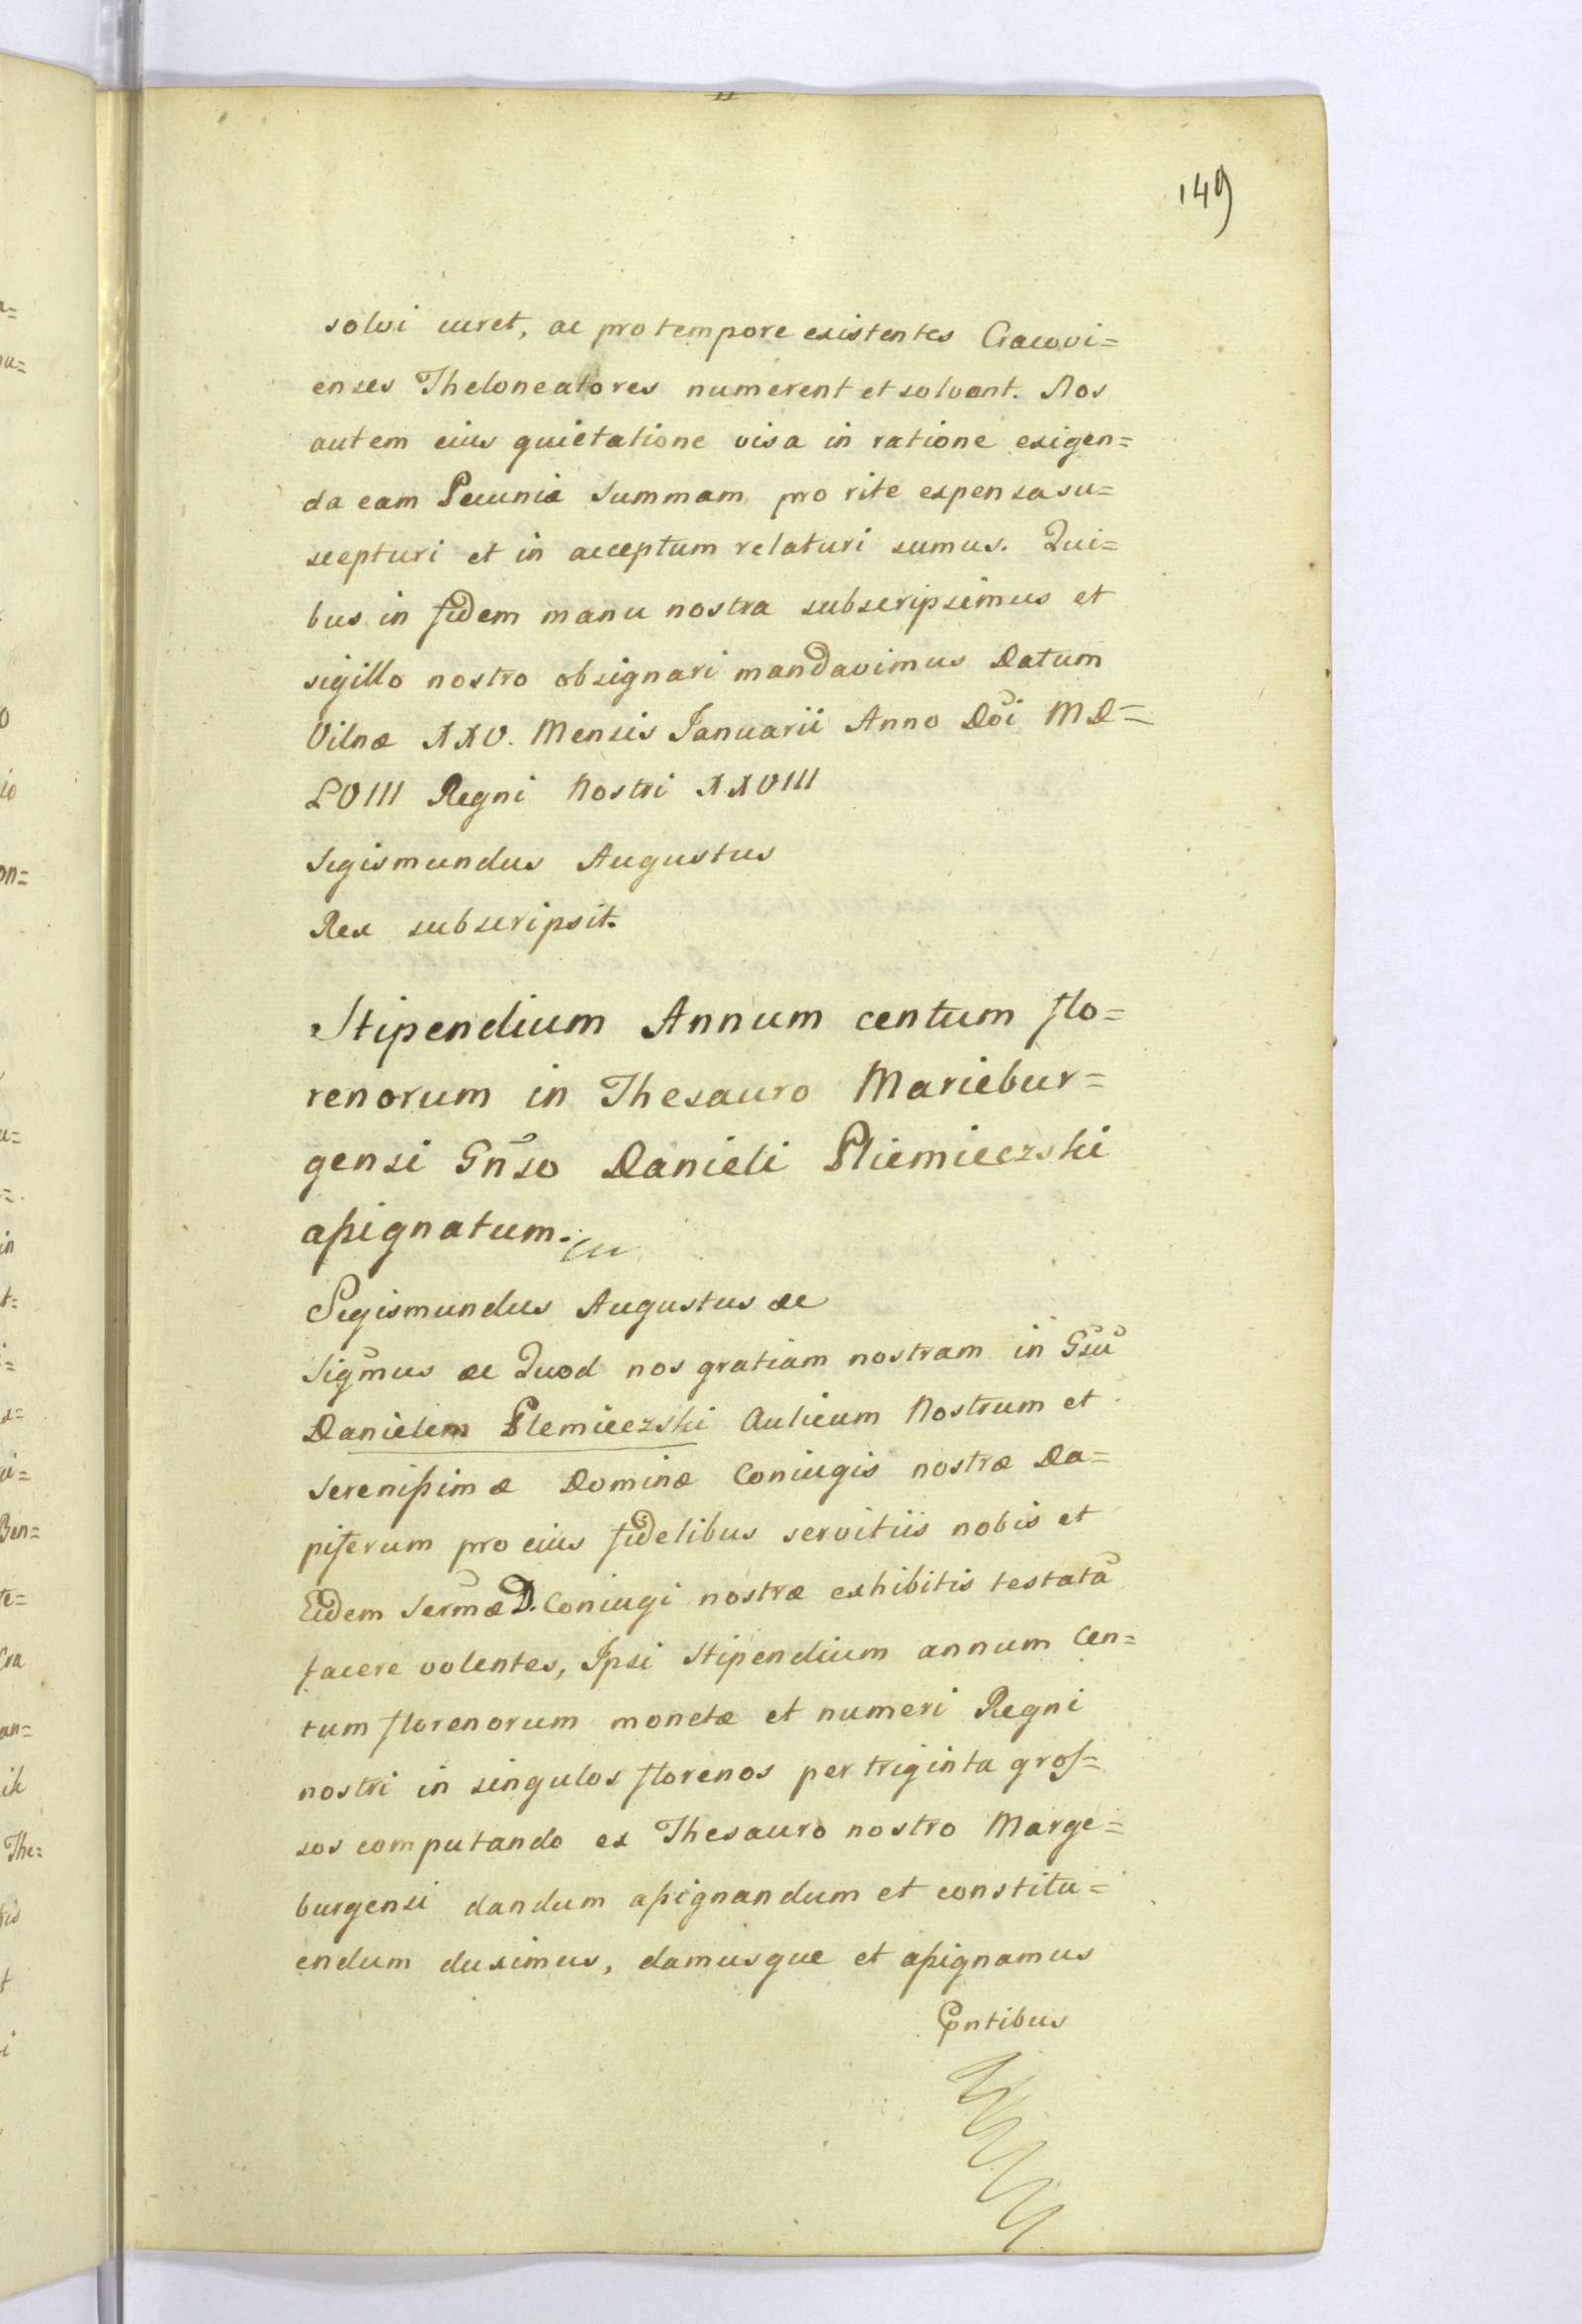 149
solvi curet, ac pro tempore existentes Cracovi=
enses Theloneatores numerent et solvant. Nos
autem eius quietatione visa in ratione exigen=
da eam Pecuniæ Summam pro rite expensa su=
scepturi et in acceptum relaturi sumus. Qui=
bus in fidem manu nostra subscripsimus et
sigillo nostro obsignari mandavimus Datum
Vilnæ XXV. Mensis Januarii Anno Dõi MD=
LVIII Regni Nostri XXVIII
Sigismundus Augustus
Rex subscripsit.
Stipendium Annum centum flo=
renorum in Thesauro Mariebur=
gensi Gñso Danieli Pliemieczski
aßignatum.
Sigismundus Augustus ac
Sigmus ac Quod nos gratiam nostram in Gsũ
Danielem Plemieczski Aulicum Nostrum et
Serenißimæ Dominæ Coniugis nostræ Da=
piferum pro eius fidelibus servitiis nobis et
Eidem Sermæ D. Coniugi nostræ exhibitis testatã
facere volentes, Ipsi Stipendium annum Cen=
tum florenorum monetæ et numeri Regni
nostri in singulos florenos per triginta gros=
sos computando ex Thesauro nostro Marge=
burgensi dandum aßignandum et constitu=
endum duximus, damusque et aßignamus
Pntibus